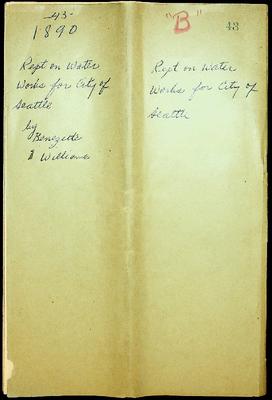 43
1890
Rept on Water
Works for City of
Seattle
by
Benezette
Williams
"B"
43
Rept on Water
Works for City of
Seattle